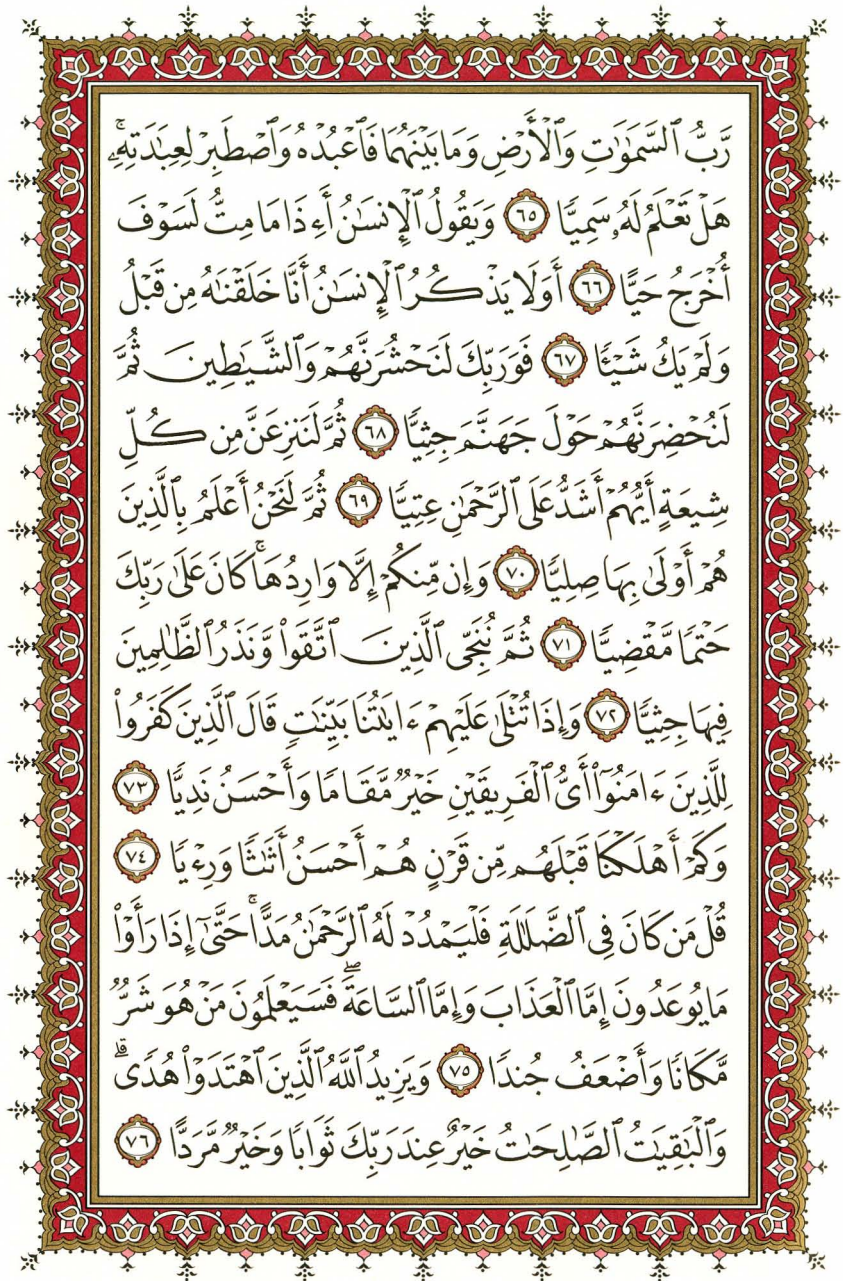 رَّبُّ ٱلسَّمَٰوَٰتِ وَٱلۡأَرۡضِ وَمَا بَيۡنَهُمَا فَٱعۡبُدۡهُ وَٱصۡطَبِرۡ لِعِبَٰدَتِهِۦۚ
هَلۡ تَعۡلَمُ لَهُۥ سَمِيّٗا ٦٥ وَيَقُولُ ٱلۡإِنسَٰنُ أَءِذَا مَا مِتُّ لَسَوۡفَ
أُخۡرَجُ حَيًّا ٦٦ أَوَلَا يَذۡكُرُ ٱلۡإِنسَٰنُ أَنَّا خَلَقۡنَٰهُ مِن قَبۡلُ
وَلَمۡ يَكُ شَيۡـٔٗا ٦٧ فَوَرَبِّكَ لَنَحۡشُرَنَّهُمۡ وَٱلشَّيَٰطِينَ ثُمَّ
لَنُحۡضِرَنَّهُمۡ حَوۡلَ جَهَنَّمَ جِثِيّٗا ٦٨ ثُمَّ لَنَنزِعَنَّ مِن كُلِّ
شِيعَةٍ أَيُّهُمۡ أَشَدُّ عَلَى ٱلرَّحۡمَٰنِ عِتِيّٗا ٦٩ ثُمَّ لَنَحۡنُ أَعۡلَمُ بِٱلَّذِينَ
هُمۡ أَوۡلَىٰ بِهَا صِلِيّٗا ٧٠ وَإِن مِّنكُمۡ إِلَّا وَارِدُهَاۚ كَانَ عَلَىٰ رَبِّكَ
حَتۡمٗا مَّقۡضِيّٗا ٧١ ثُمَّ نُنَجِّي ٱلَّذِينَ ٱتَّقَواْ وَّنَذَرُ ٱلظَّٰلِمِينَ
فِيهَا جِثِيّٗا ٧٢ وَإِذَا تُتۡلَىٰ عَلَيۡهِمۡ ءَايَٰتُنَا بَيِّنَٰتٖ قَالَ ٱلَّذِينَ كَفَرُواْ
لِلَّذِينَ ءَامَنُوٓاْ أَيُّ ٱلۡفَرِيقَيۡنِ خَيۡرٞ مَّقَامٗا وَأَحۡسَنُ نَدِيّٗا ٧٣
وَكَمۡ أَهۡلَكۡنَا قَبۡلَهُم مِّن قَرۡنٍ هُمۡ أَحۡسَنُ أَثَٰثٗا وَرِءۡيٗا ٧٤
قُلۡ مَن كَانَ فِي ٱلضَّلَٰلَةِ فَلۡيَمۡدُدۡ لَهُ ٱلرَّحۡمَٰنُ مَدًّاۚ حَتَّىٰٓ إِذَا رَأَوۡاْ
مَا يُوعَدُونَ إِمَّا ٱلۡعَذَابَ وَإِمَّا ٱلسَّاعَةَۖ فَسَيَعۡلَمُونَ مَنۡ هُوَ شَرّٞ
مَّكَانٗا وَأَضۡعَفُ جُندٗا ٧٥ وَيَزِيدُ ٱللَّهُ ٱلَّذِينَ ٱهۡتَدَوۡاْ هُدٗىۗ
وَٱلۡبَٰقِيَٰتُ ٱلصَّٰلِحَٰتُ خَيۡرٌ عِندَ رَبِّكَ ثَوَابٗا وَخَيۡرٞ مَّرَدًّا ٧٦